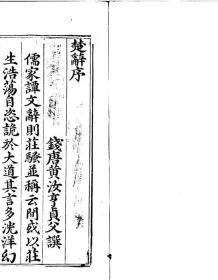 楚辭序
錢唐黃汝亨貞父譔
儒家譚文辭則莊騷並稱云間或以莊
生浩蕩自恣詭於大道其言多洸洋幻